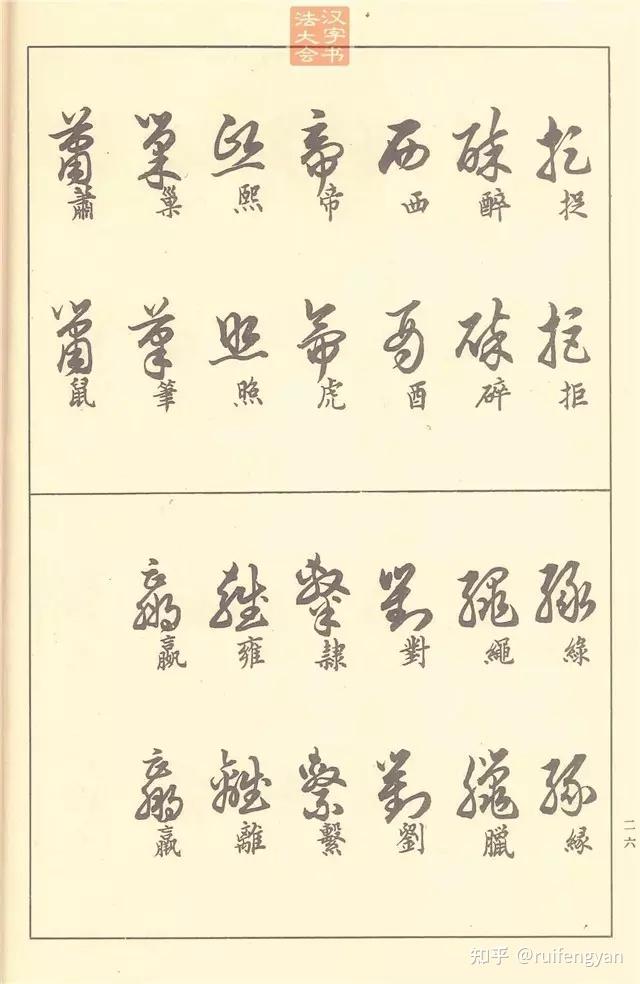 汉字书
法大会
捉 拒
醉 碎
西 酉
帝 虎
熙 照
巢 筆
蕭 鼠
綠 緣
繩 臘
對 劉
隸 繫
雍 離
嬴 羸
二六
知乎 @ruifengyan